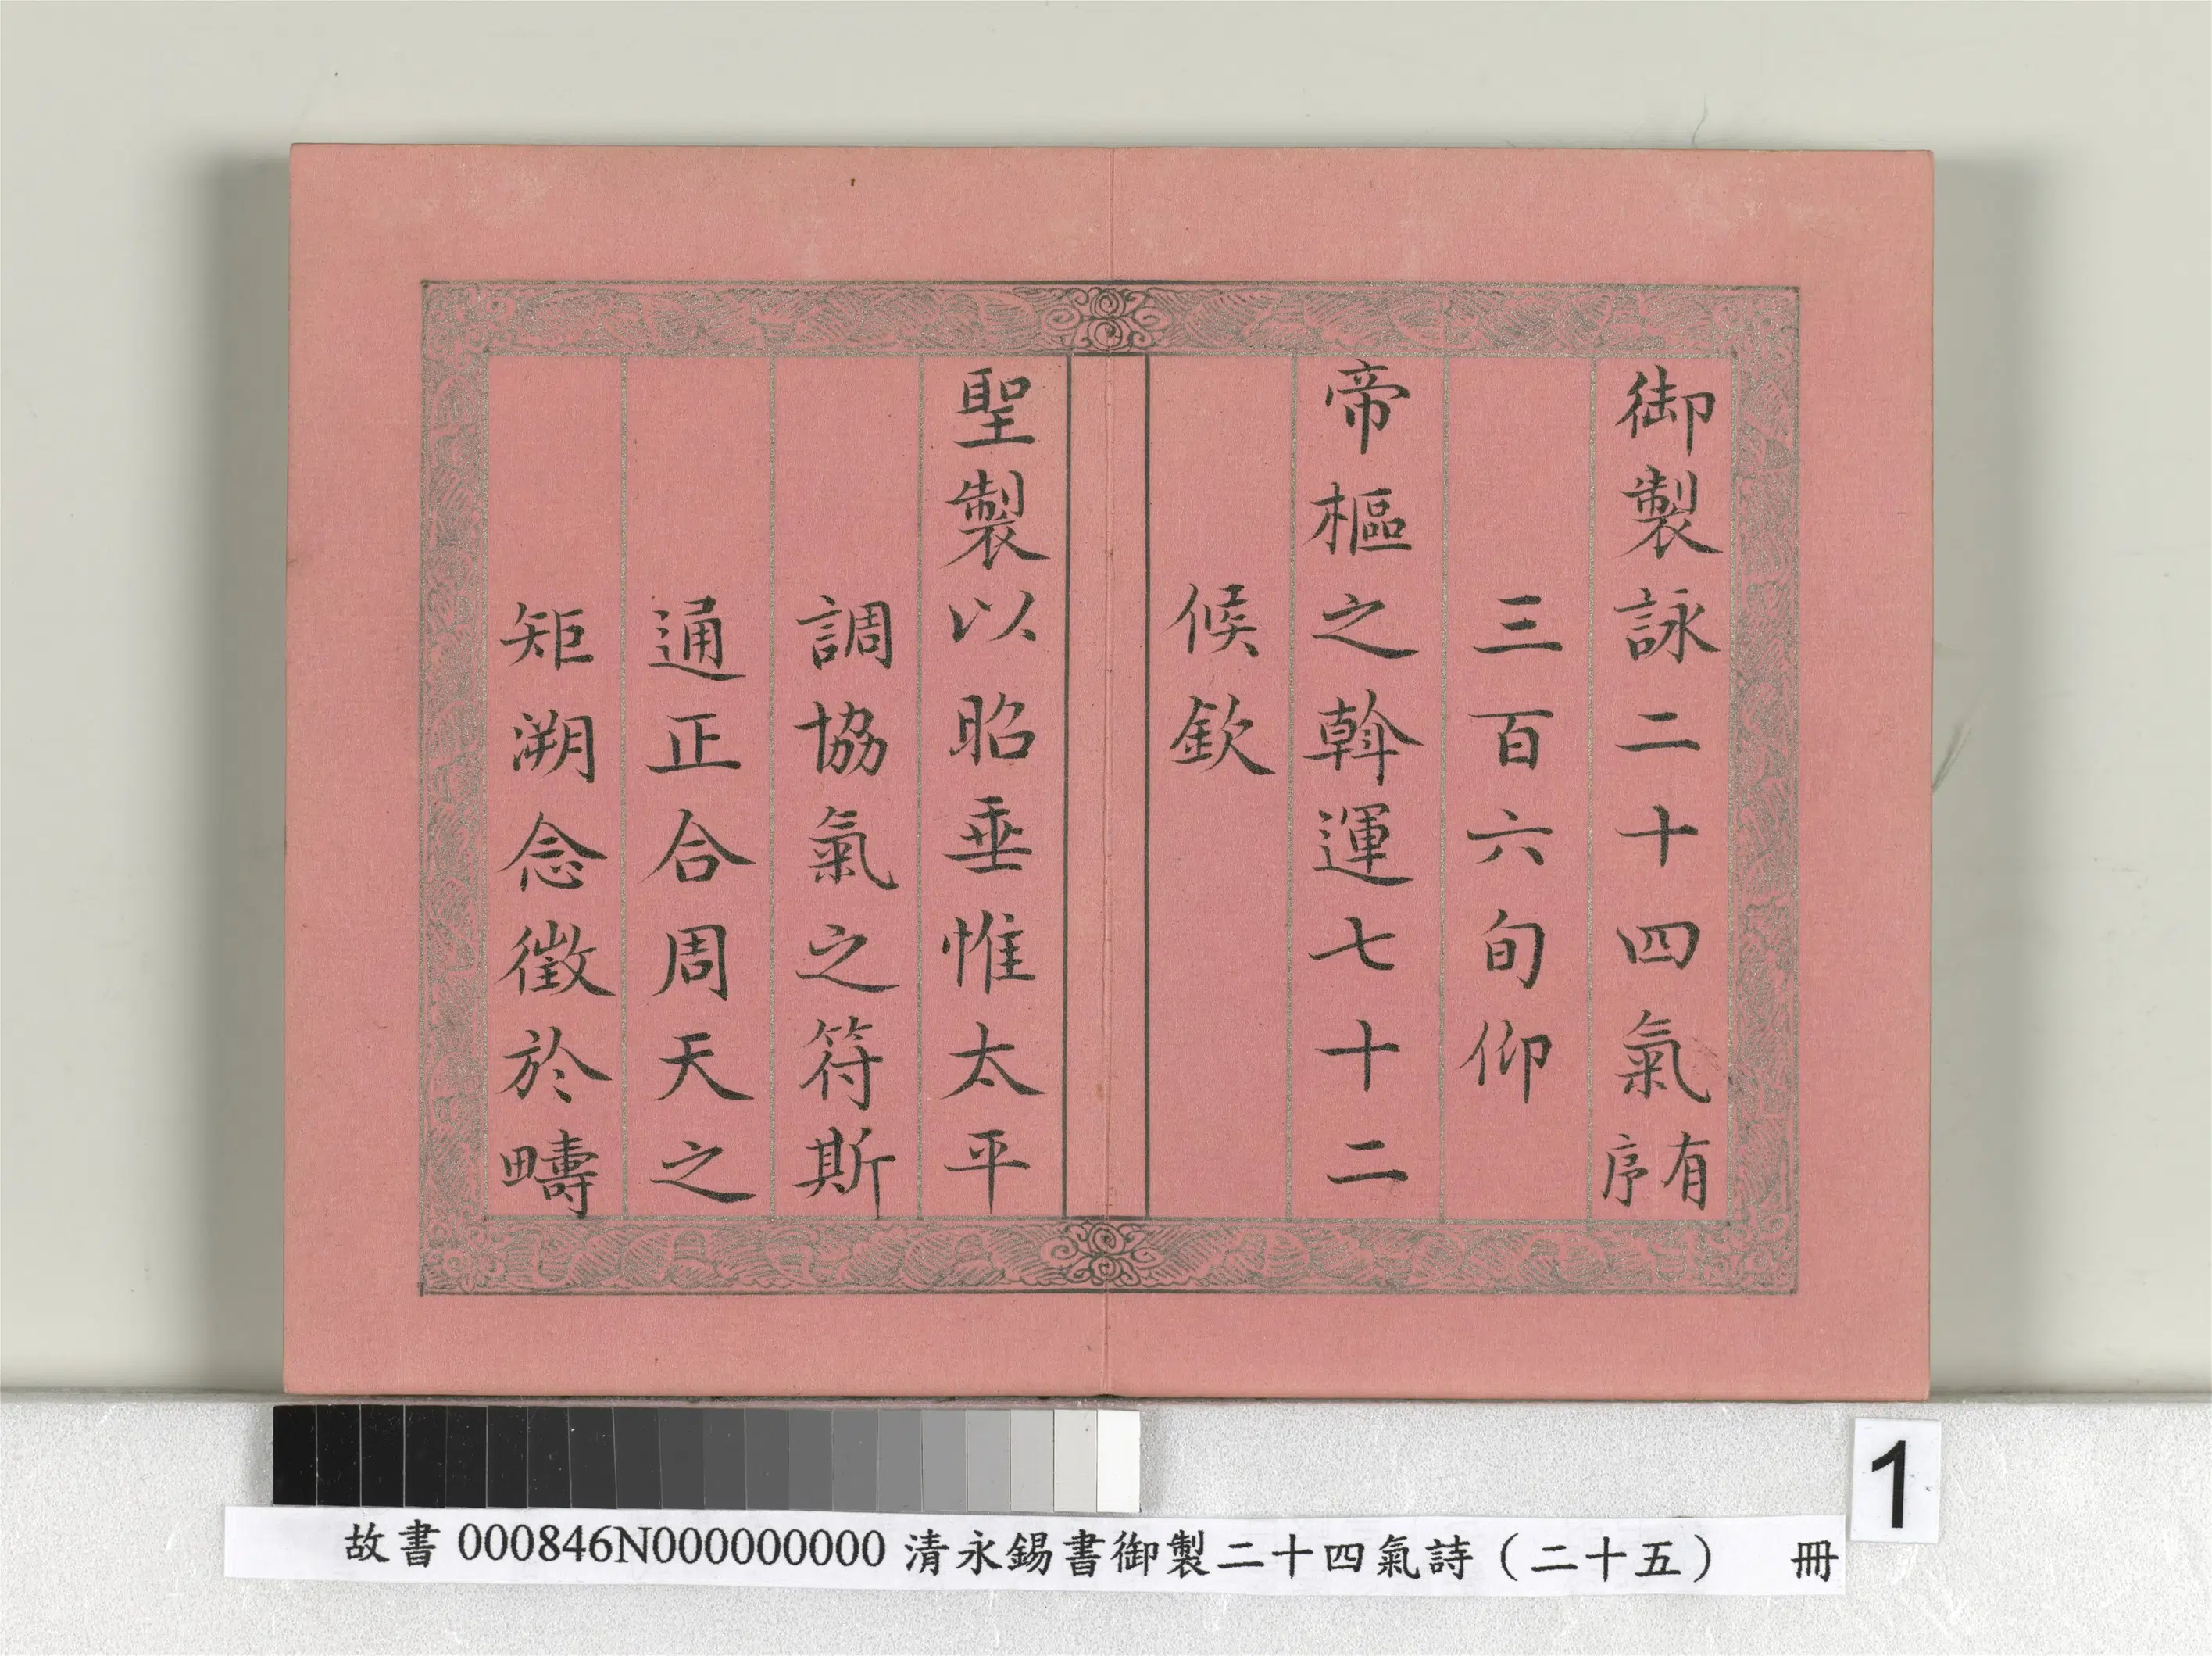 御製詠二十四氣有序
三百六旬仰
帝樞之斡運七十二
候欽
聖製以昭垂惟太平
調協氣之符斯
通正合周天之
矩溯念徵於疇
1
故書 000846N000000000 清永錫書御製二十四氣詩（二十五） 冊